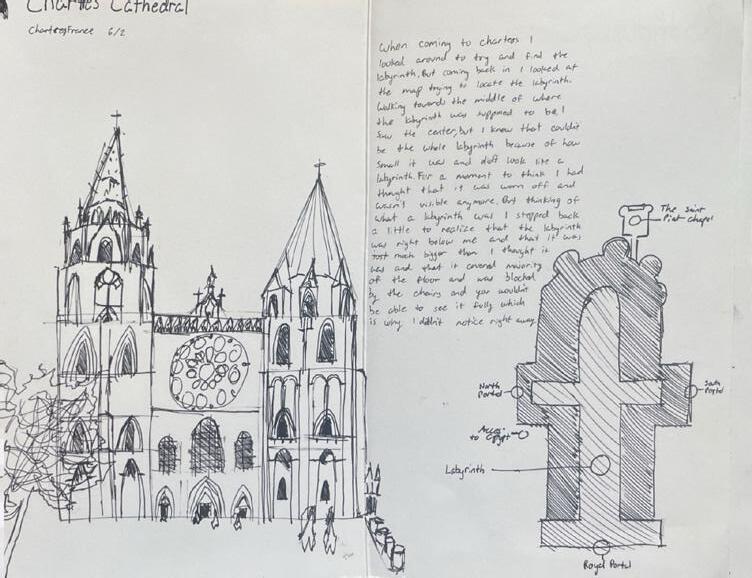 Chartres Cathedral
Chartres, France 6/2
When coming to charters I
looked around to try and find the
labyrinth. But coming back in I looked at
the map trying to locate the labyrinth.
Walking towards the middle of where
the labyrinth was supposed to be, I
saw the center, but I knew that couldn't
be the whole labyrinth because of how
small it was and didt look like a
labyrinth. For a moment to think I had
thought that it was worn off and
wasn't visible anymore. But thinking of
what a labyrinth was I stepped back
a little to realize that the labyrinth
was right below me and that it was
just much bigger than I thought it
was and that it covered majority
of the floor and was blocked
by the chairs and you wouldn't
be able to see it fully which
is why I didn't notice right away
The Saint
Piat Chapel
North
Portal
South
Portal
Access
to Crypt
Labyrinth
Royal Portal